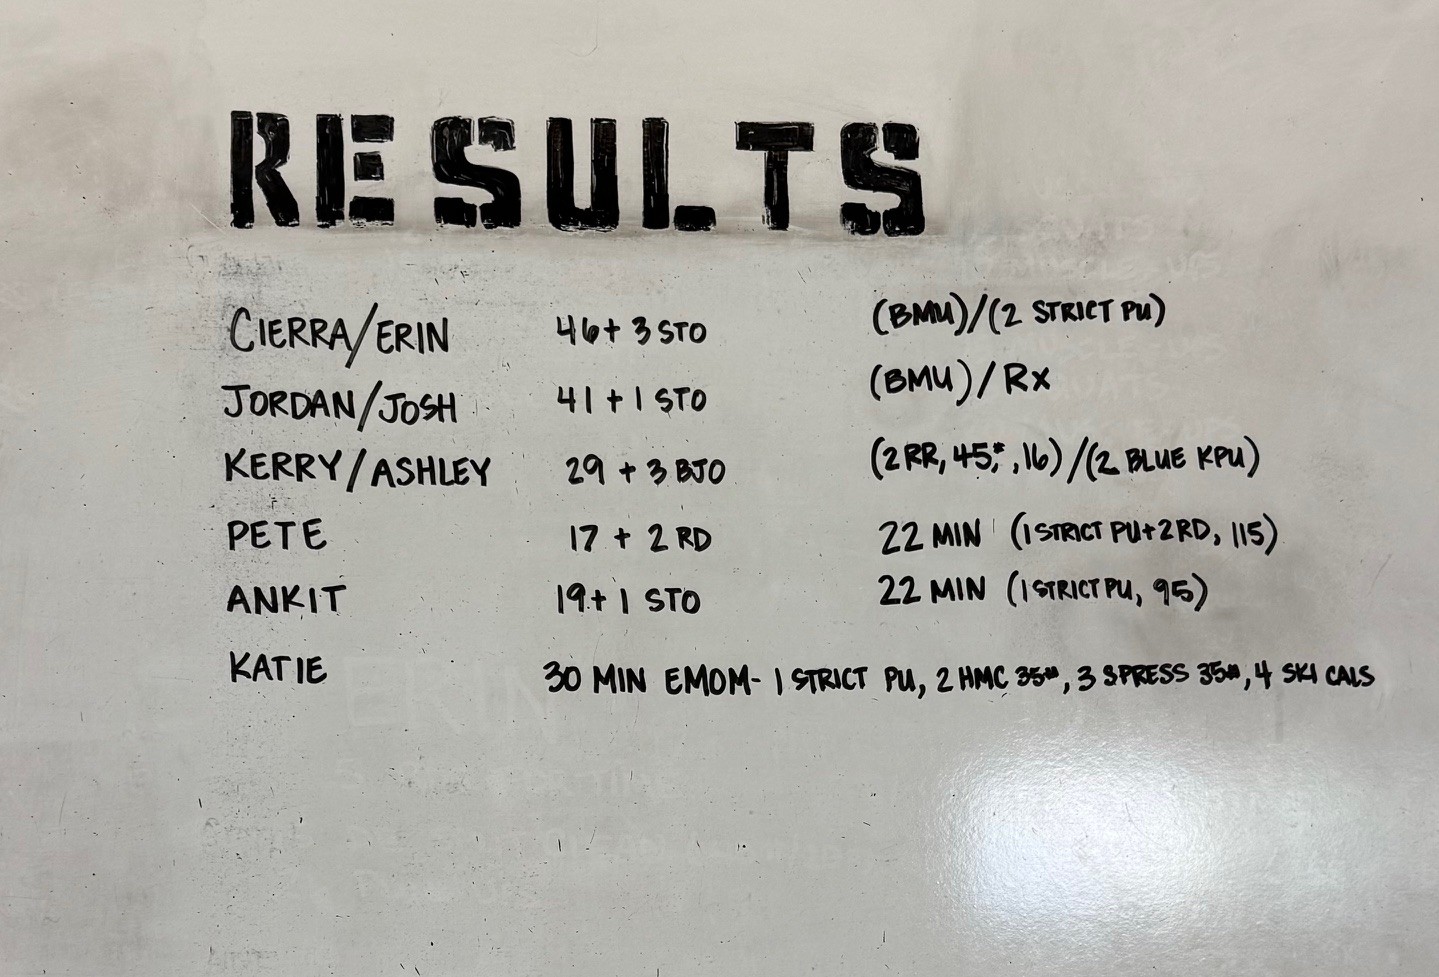 RESULTS
CIERRA/ERIN 46 + 3 STO (BMU)/(2 STRICT PU)
JORDAN/JOSH 41 + 1 STO (BMU)/RX
KERRY/ASHLEY 29 + 3 BJO (2 RR, 45#, 16)/(2 BLUE KPU)
PETE 17 + 2 RD 22 MIN (1 STRICT PU+2RD, 115)
ANKIT 19 + 1 STO 22 MIN (1 STRICT PU, 95)
KATIE 30 MIN EMOM- 1 STRICT PU, 2 HMC 35#, 3 SPRESS 35#, 4 SKI CALS